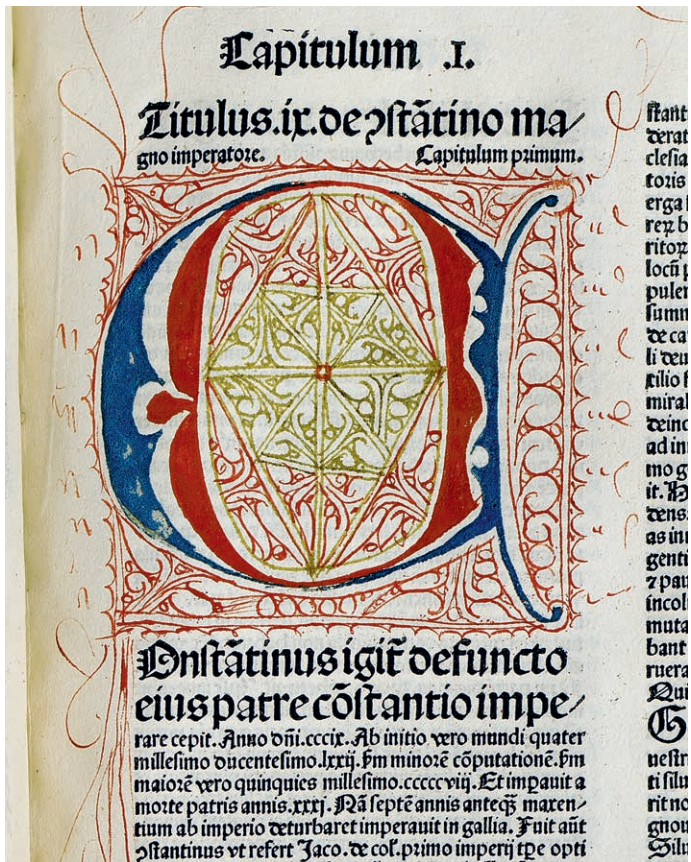 Capitulum .I.
Titulus.ix.de ꝯstãtino ma/
gno imperatore. Capitulum primum.
C
Onstãtinus igit̃ defuncto
eius patre cõstantio impe/
rare cepit. Anno dñi.cccix. Ab initio vero mundi quater
millesimo ducentesimo.lxxij. ẜm minorẽ cõputationẽ. ẜm
maiorẽ vero quinquies millesimo.cccccviij. Et imꝑauit a
morte patris annis.xxxj. Nã septẽ annis anteqꝫ maxen/
tium ab imperio deturbaret imperauit in gallia. Fuit aũt
ꝯstantinus vt refert Jaco. de col. primo imperij tꝑe opti
stant
derat
clesia
toris
erga
locũ p
pulen
summ
de ca
li deu
cilio
deinc
ad ini
mo g
it.
dens
as inn
genti
incol
muta
bant
ruera
Qui
G
uestr
ti silu
rit no
gnou
Silu